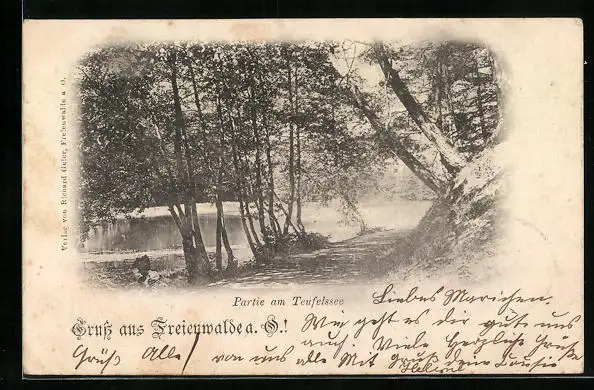 Verlag von Richard Geier, Freienwalde a. O.
Partie am Teufelssee
Gruß aus Freienwalde a. O.!
Liebes Mariechen.
Wie geht es dir gute uns
auch. Viele Herzliche Grüße
Grüß Alle von uns alle Mit Gruß Louise
Helene